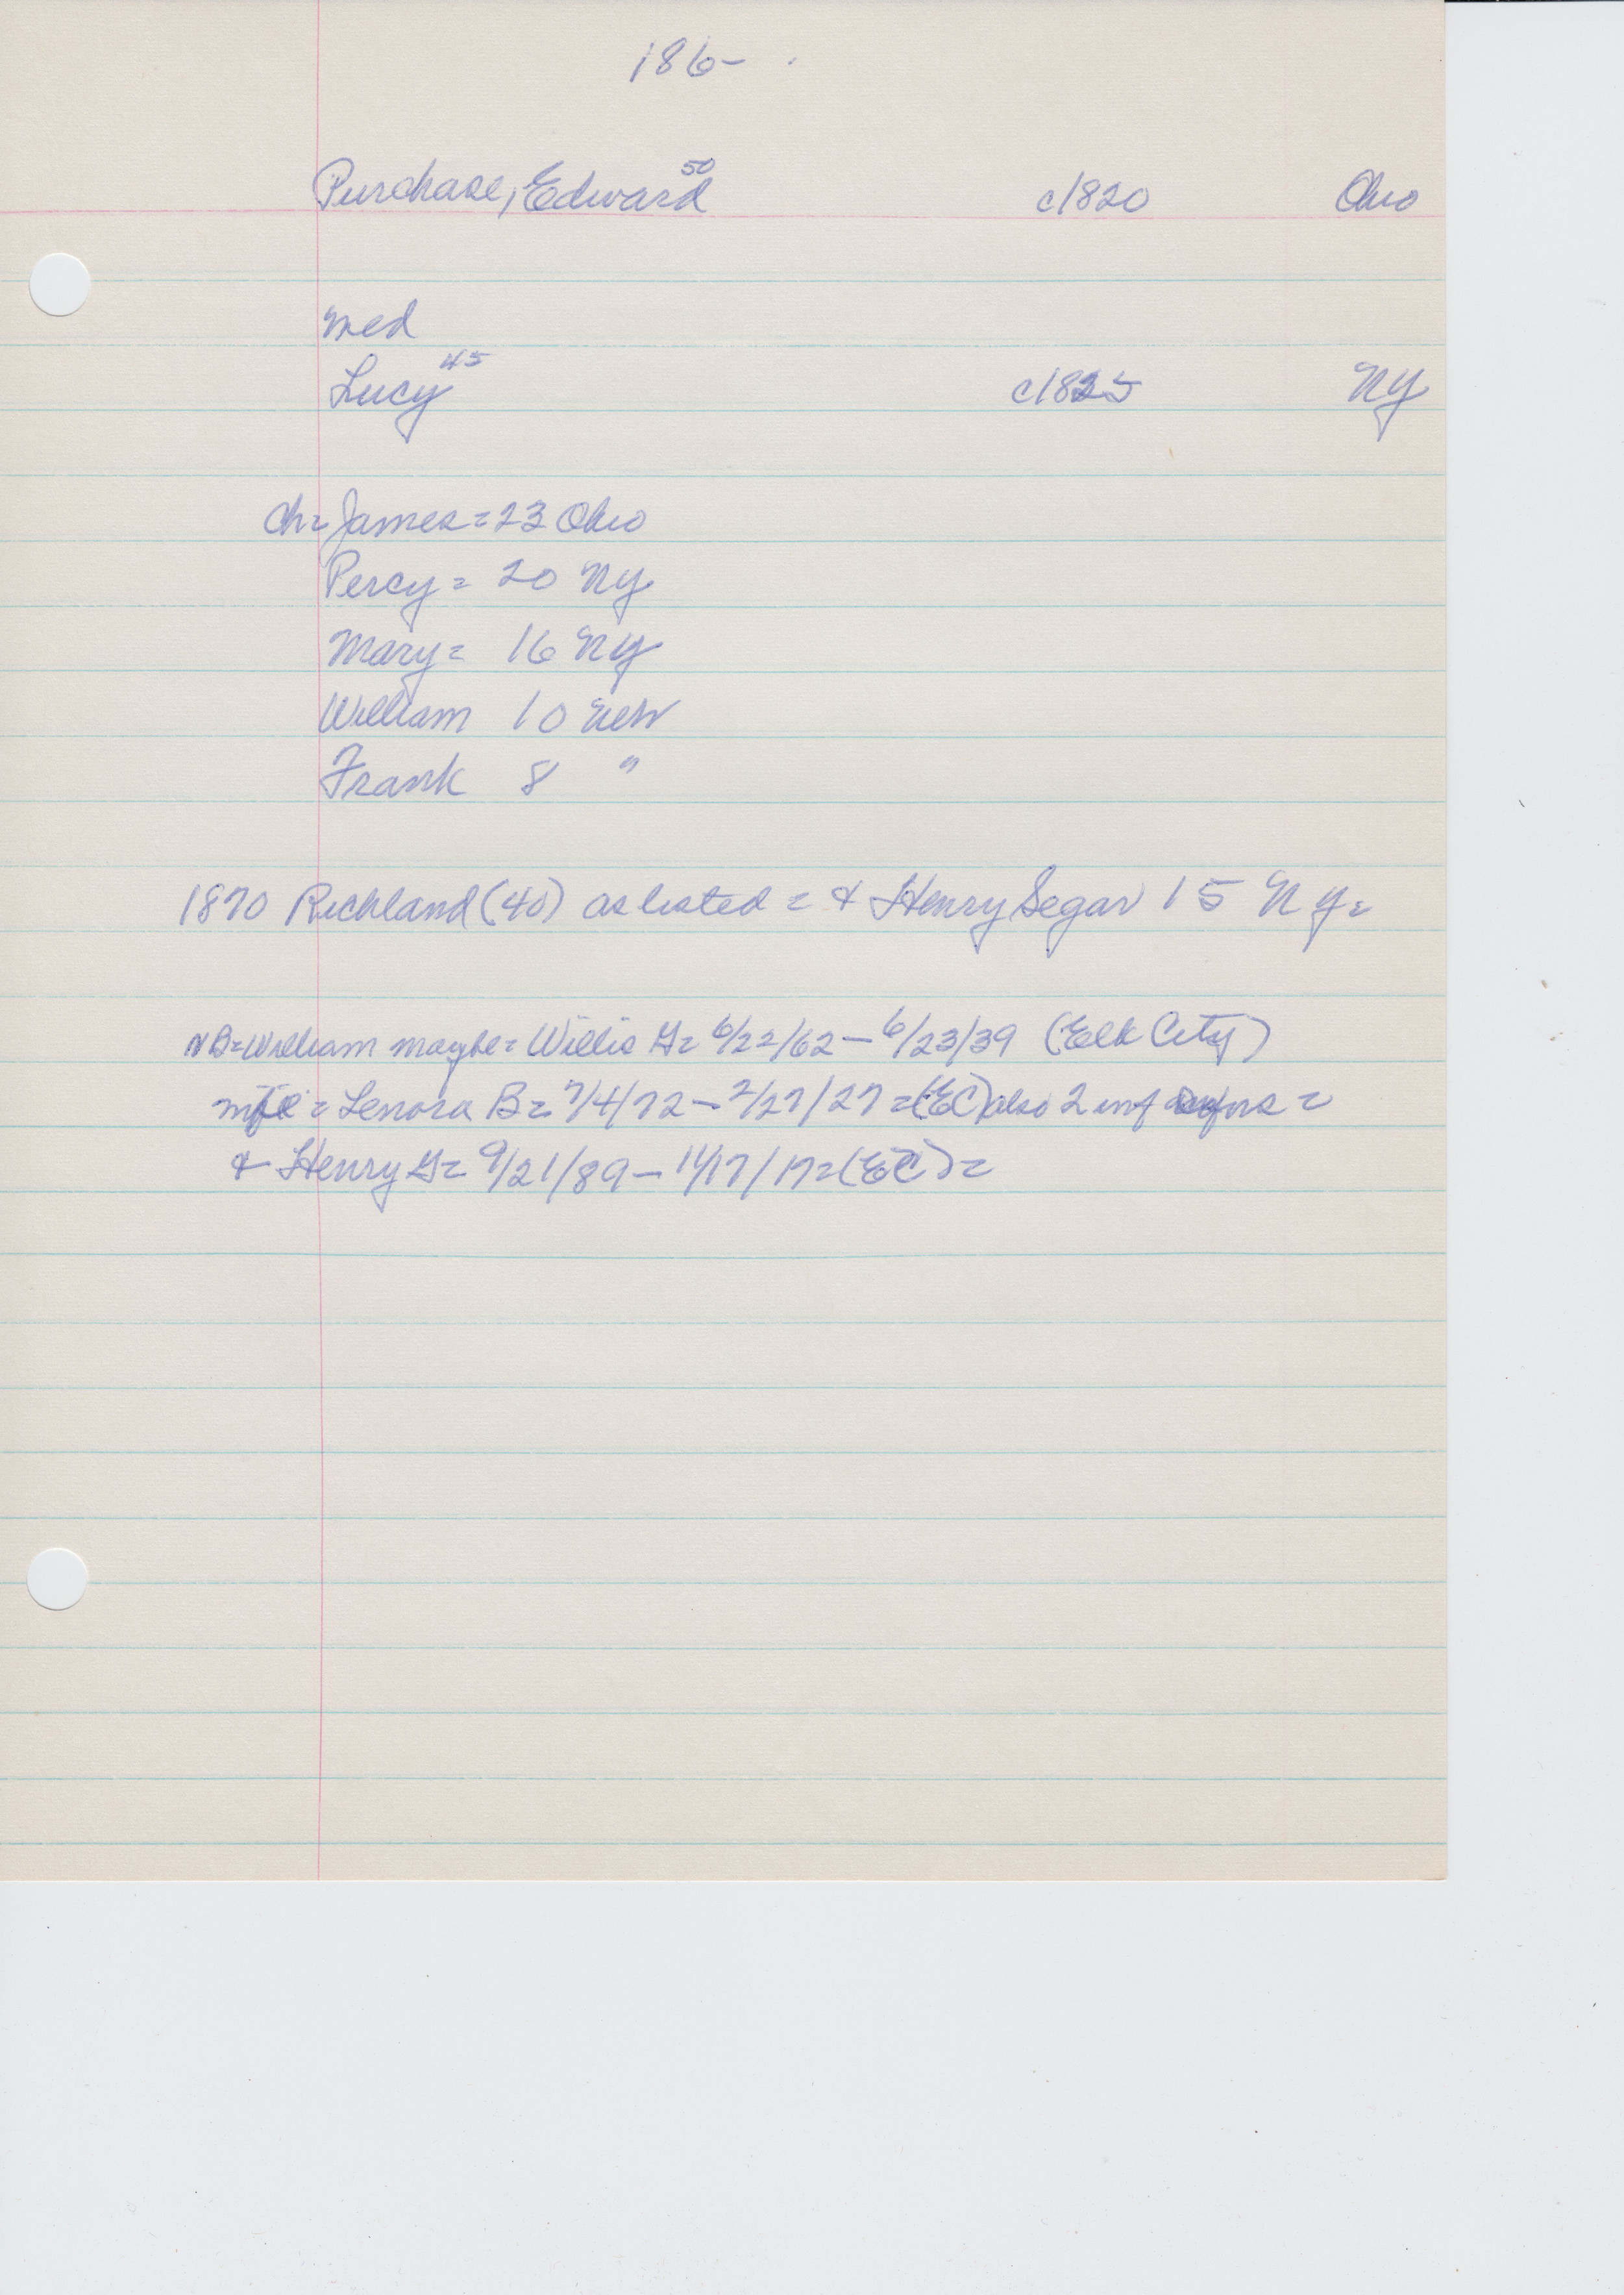 186-
Purchase, Edward 50 c1820 Ohio
med
Lucy 45 c1825 NY
ch= James = 23 Ohio
Percy = 20 NY
Mary = 16 NY
William 10 Neb
Frank 8 "
1870 Richland (40) as listed = & Henry Segar 15 NY=
NB= William maybe = Willis G= 6/22/62 - 6/23/39 (Elk City)
= Lenora B= 7/4/72 - 2/27/27 = (EC) also 2 inf =
& Henry G= 9/21/89 - 11/17/17 = (EC) =